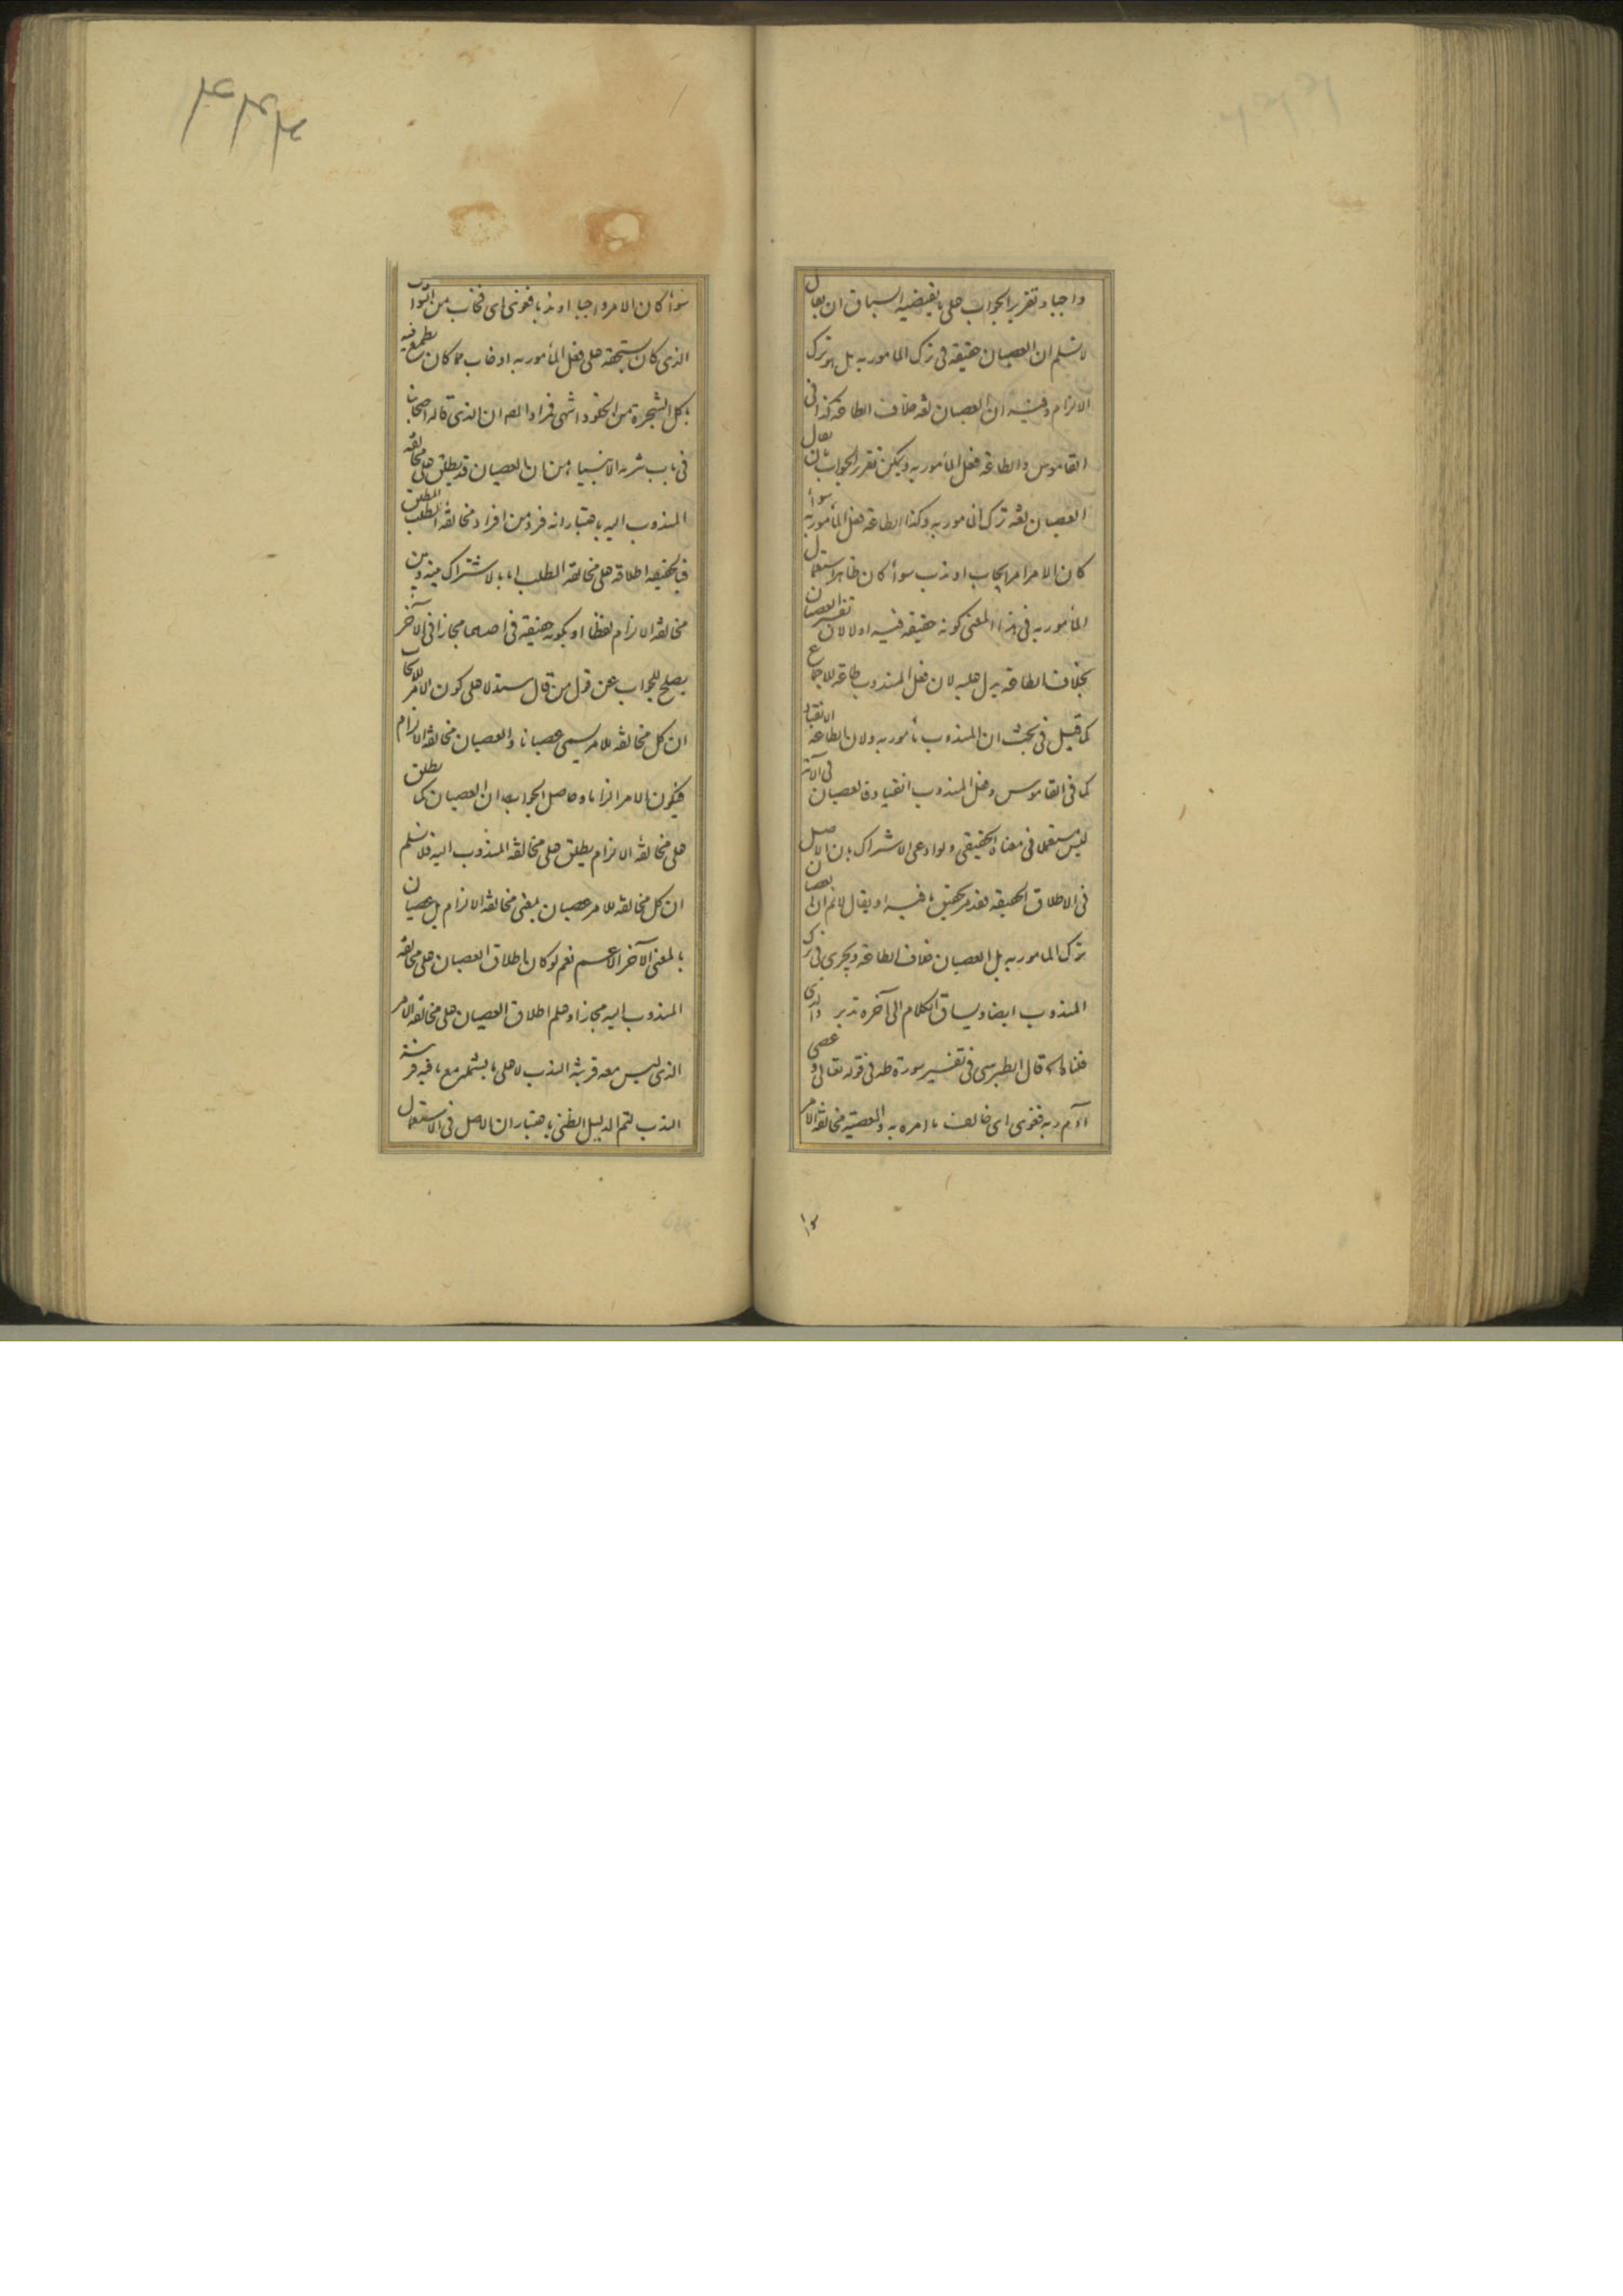 واجبا وتقرير الجواب على ما يقتضيه السياق ان يقال
لا نسلم ان العصيان حقيقة فى ترك المامور به بل هو ترك
الالزام وفيه ان العصيان لغة خلاف الطاعة كذا فى
القاموس والطاعة فعل المأمور به ويمكن تقرير الجواب بان يقال
العصيان لغة ترك المامور به وكذا الطاعة فعل المأمور به سوأ
كان الامر امر ايجاب او ندب سوأ كان ظاهر استعمال
المأمور به فى هذا المعنى كونه حقيقة فيه اولا لان تفسير العصيان
بخلاف الطاعة يدل عليه لان فعل المندوب طاعة للاجماع
كما قيل فى بحث ان المندوب مأمور به ولان الطاعة الانقياد
كما فى القاموس وفعل المندوب انقياد فالعصيان فى الآية
ليس مستعملا فى معناه الحقيقى ولو ادعى الاشتراك بان الاصل
فى الاطلاق الحقيقة فقد مر تحقيق ما فيه او يقال لا نم ان العصيان
ترك المامور به بل العصيان خلاف الطاعة ويجرى فى ترك
المندوب ايضا ويساق الكلام الى آخره تدبر والذى
قلناه قال الطبرسى فى تفسير سورة طه فى قوله تعالى وعصى
آدم ربه فغوى اى خالف ما امره به والمعصية مخالفة الامر
سوأ كان الامر واجبا او ندبا فغوى اى فخاب من الثواب
الذى كان يستحقه على فعل المأمور به او خاب مما كان يطمع فيه
باكل الشجرة من الخلود انتهى فزاد ان الذى قاله اصحابنا
فى باب تنزيه الانبياء من ان العصيان قد يطلق على مخالفة
المندوب اليه باعتبار انه فرد من افراد مخالفة الطلب المطلق
فالحقيقة اطلاقه على مخالفة المطلب اما بالاشتراك بينه وبين
مخالفة الالزام لفظا او بكونه حقيقة فى احدهما مجازا فى الآخر
يصلح للجواب عن قول من قال مستدلا على كون الامر للايجاب
ان كل مخالفة للامر يسمى عصيانا والعصيان مخالفة الالزام
فيكون الامر الزاما وحاصل الجواب ان العصيان كما يطلق
على مخالفة الالزام يطلق على مخالفة المندوب اليه فلا نسلم
ان كل مخالفة للامر عصيان بمعنى مخالفة الالزام بل عصيان
بالمعنى الآخر الاعم نعم لو كان اطلاق العصيان على مخالفة
المندوب اليه مجازا وعلم اطلاق العصيان على مخالفة الامر
الذى ليس معه قرينة الندب لا على ما يشمله مع ما فيه قرينة
الندب لتم الدليل الظنى باعتبار ان الاصل فى الاستعمال